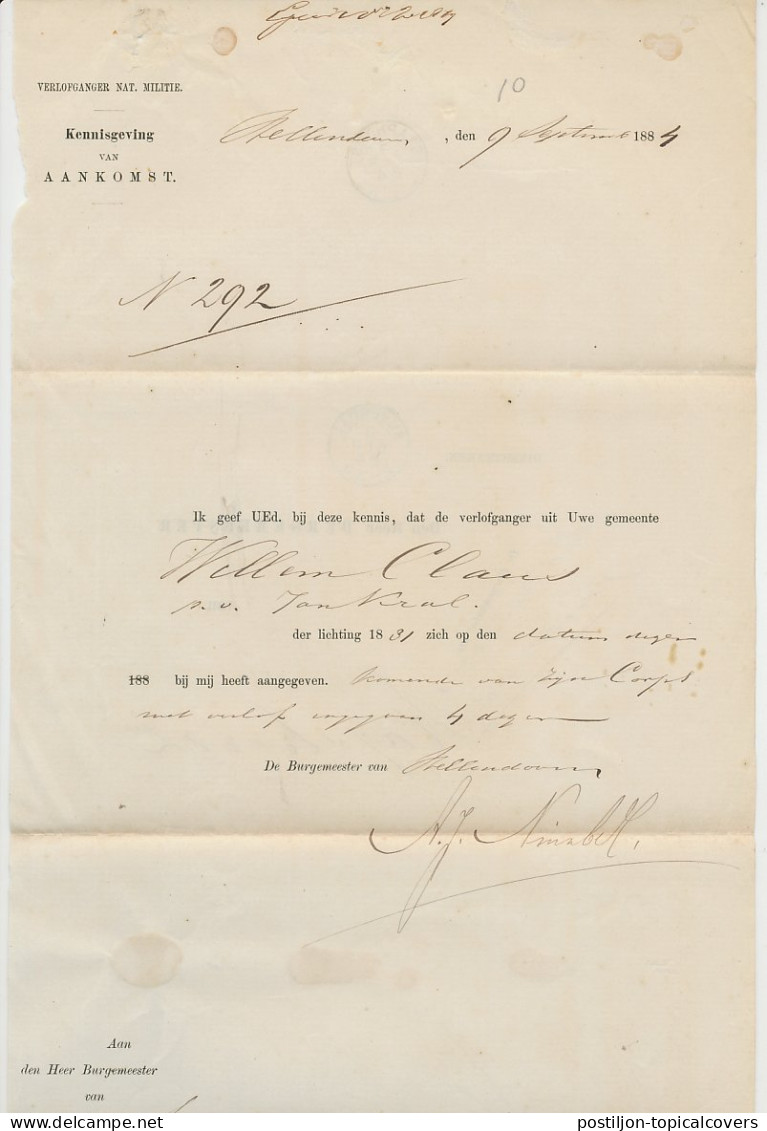 10
VERLOFGANGER NAT. MILITIE.
Kennisgeving
VAN
AANKOMST.
Stellendam, den 9 September 1884
N 292
Ik geef UEd. bij deze kennis, dat de verlofganger uit Uwe gemeente
Willem Claus
p.v. Jan Kral.
der lichting 1881 zich op den datum dezer
188 bij mij heeft aangegeven. komende van zijn Corps
met verlof 4 dagen
De Burgemeester van
A.J.
Aan
den Heer Burgemeester
van
postiljon-topicalcovers